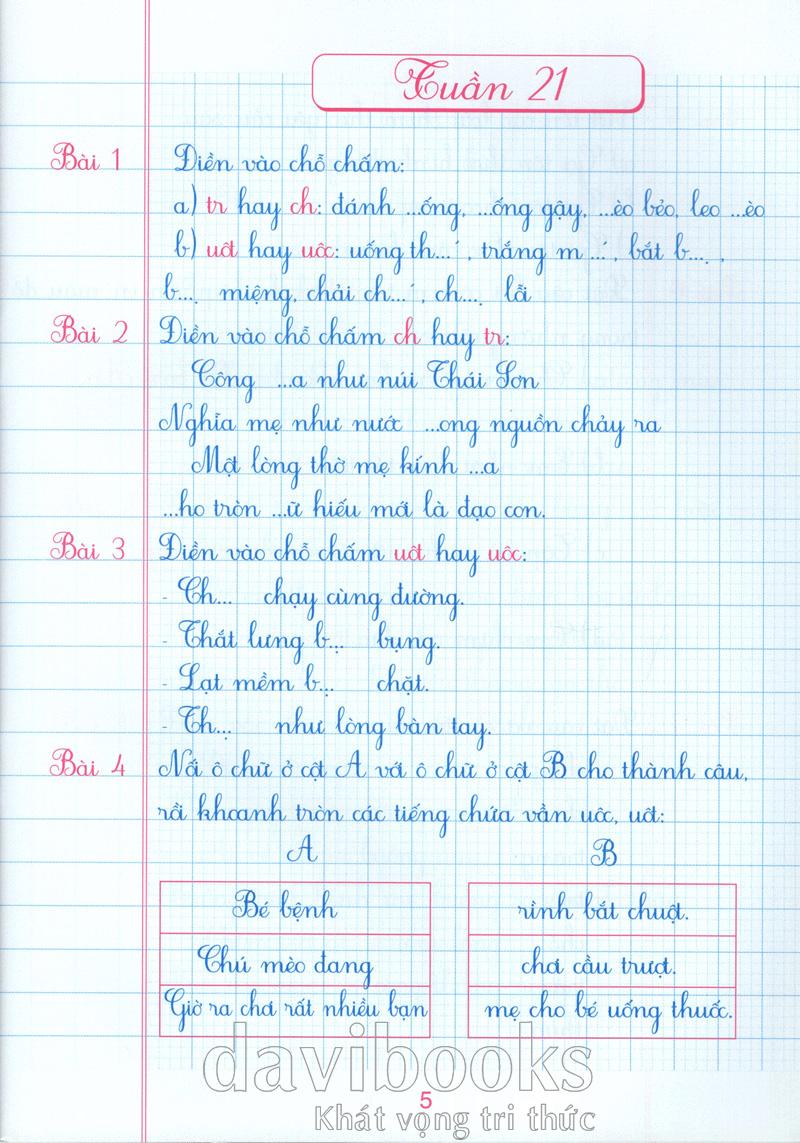 Tuần 21
Bài 1 Điền vào chỗ chấm:
a) tr hay ch: đánh ...ống, ...ống gậy, ...èo bẻo, leo ...èo
b) uôt hay uôc: uống th...´, trắng m ...´, bắt b....̣ ,
b....̣ miệng, chải ch...´, ch....̣ lỗi
Bài 2 Điền vào chỗ chấm ch hay tr:
Công ...a như núi Thái Sơn
Nghĩa mẹ như nước ...ong nguồn chảy ra
Một lòng thờ mẹ kính ...a
...ho tròn ...ữ hiếu mới là đạo con.
Bài 3 Điền vào chỗ chấm uôt hay uôc:
- Th... chạy cùng đường.
- Thắt lưng b... bụng.
- Lạt mềm b... chặt.
- Th... như lòng bàn tay.
Bài 4 Nối ô chữ ở cột A với ô chữ ở cột B cho thành câu,
rồi khoanh tròn các tiếng chứa vần uôc, uôt:
A B
Bé bệnh rình bắt chuột.
Chú mèo đang chơi cầu trượt.
Giờ ra chơi rất nhiều bạn mẹ cho bé uống thuốc.
davibooks
5
Khát vọng tri thức